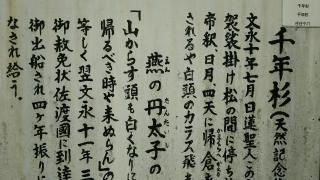 千年杉(天然記念
文永十年七月日蓮聖人この
袈裟掛け松の間に停ち
帝釈、日月、四天に帰倉を
されるや白頭のカラス飛き
燕の丹太子の
えん たんたいし
「山からす頭も白くなりに
帰るべき時や来ぬらん」の
等しく翌文永十一年三
御赦免状佐渡國に到達
御出船され四ヶ年振りに
なされ給う。
千年杉
千年杉